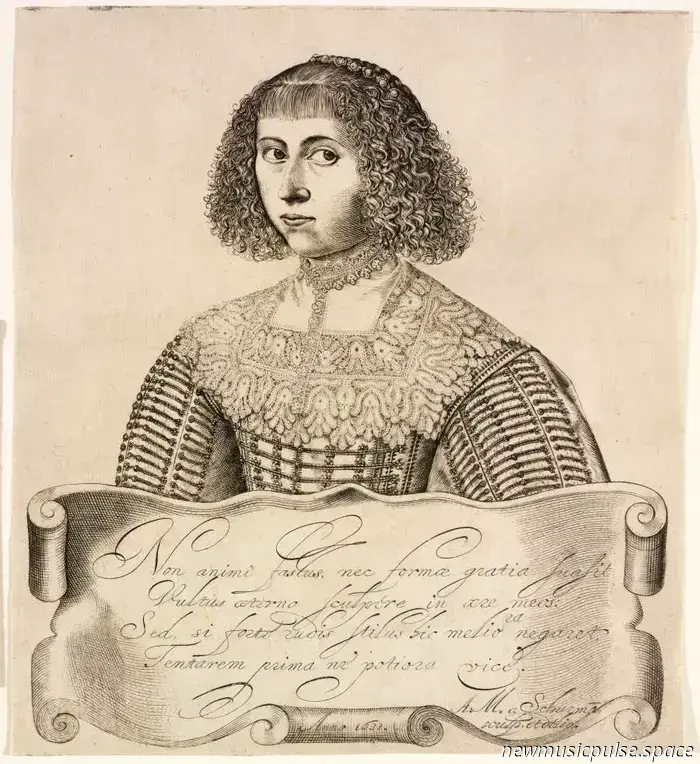 Non animi fastus, nec formæ gratia suasit
Vultus æterno sculpere in ære meos:
Sed, si forte rudis stilus hic meliora negaret,
Tentarem prima ne potiora vice.
A. M. a Schurman
Anno 1633.
newmusicpulse.space